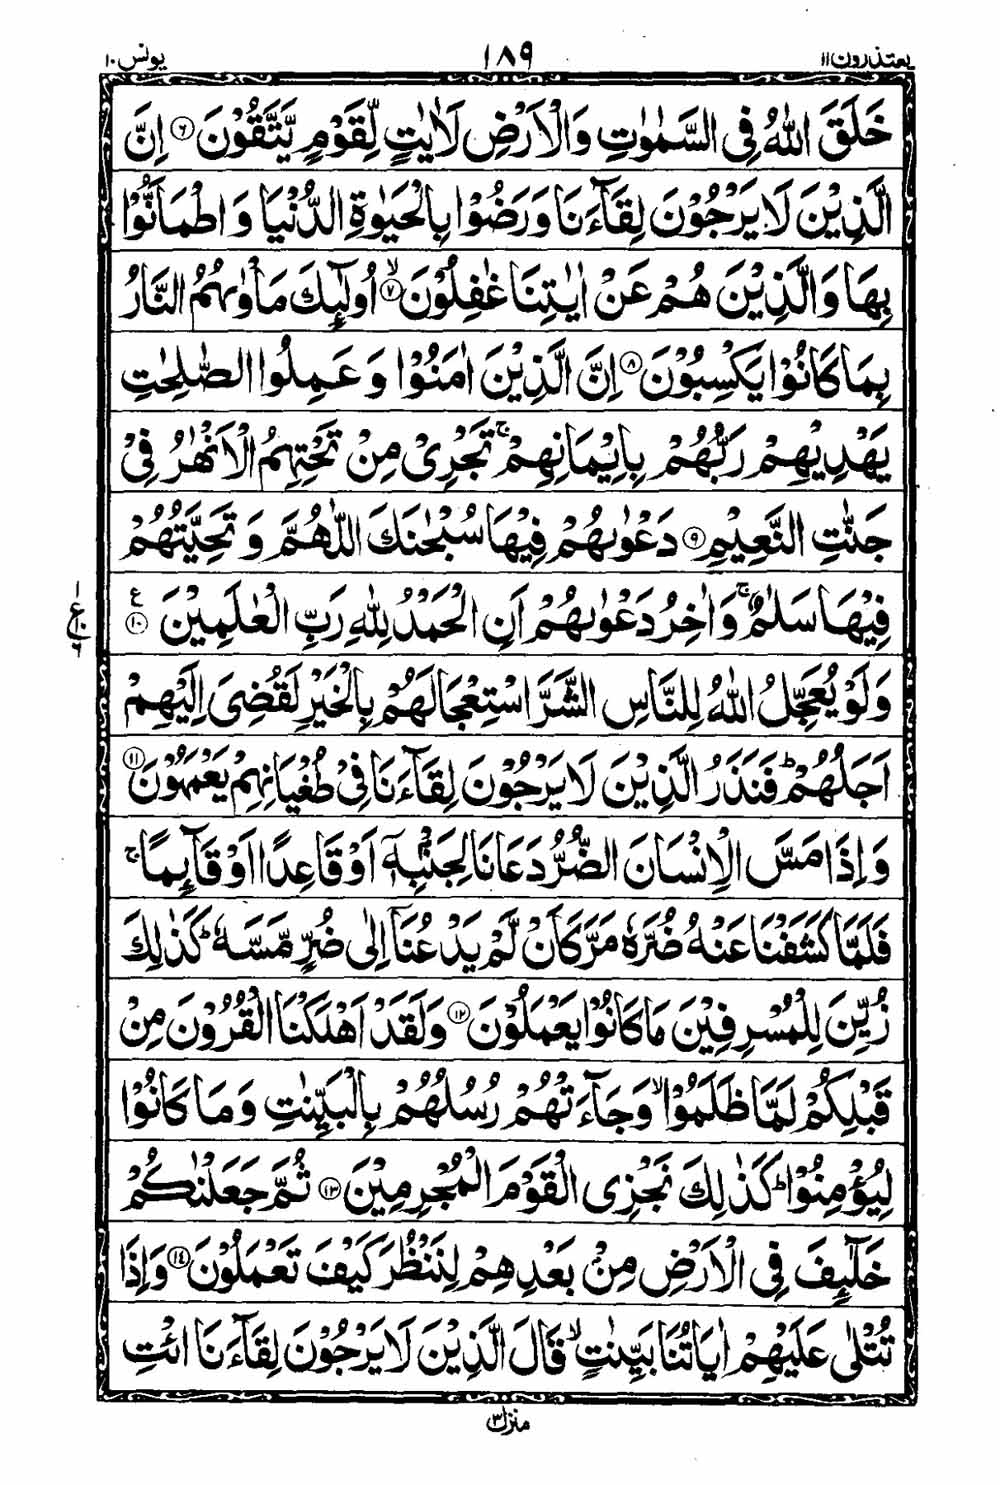 يعتذرون ١١ ١٨٩ يونس ١٠
خَلَقَ اللّٰهُ فِی السَّمٰوٰتِ وَالْاَرْضِ لَاٰیٰتٍ لِّقَوْمٍ یَّتَّقُوْنَ ۶ اِنَّ
الَّذِیْنَ لَا یَرْجُوْنَ لِقَآءَنَا وَرَضُوْا بِالْحَیٰوةِ الدُّنْیَا وَاطْمَاَنُّوْا
بِهَا وَالَّذِیْنَ هُمْ عَنْ اٰیٰتِنَا غٰفِلُوْنَ ۙ۷ اُولٰٓئِكَ مَاْوٰىهُمُ النَّارُ
بِمَا كَانُوْا یَكْسِبُوْنَ ۸ اِنَّ الَّذِیْنَ اٰمَنُوْا وَعَمِلُوا الصّٰلِحٰتِ
یَهْدِیْهِمْ رَبُّهُمْ بِاِیْمَانِهِمْ ۚ تَجْرِیْ مِنْ تَحْتِهِمُ الْاَنْهٰرُ فِیْ
جَنّٰتِ النَّعِیْمِ ۹ دَعْوٰىهُمْ فِیْهَا سُبْحٰنَكَ اللّٰهُمَّ وَتَحِیَّتُهُمْ
فِیْهَا سَلٰمٌ ۚ وَاٰخِرُ دَعْوٰىهُمْ اَنِ الْحَمْدُ لِلّٰهِ رَبِّ الْعٰلَمِیْنَ ۱۰ ع
١ ع ١٠ ٦
وَلَوْ یُعَجِّلُ اللّٰهُ لِلنَّاسِ الشَّرَّ اسْتِعْجَالَهُمْ بِالْخَیْرِ لَقُضِیَ اِلَیْهِمْ
اَجَلُهُمْ ؕ فَنَذَرُ الَّذِیْنَ لَا یَرْجُوْنَ لِقَآءَنَا فِیْ طُغْیَانِهِمْ یَعْمَهُوْنَ ۱۱
وَاِذَا مَسَّ الْاِنْسَانَ الضُّرُّ دَعَانَا لِجَنْۢبِهٖۤ اَوْ قَاعِدًا اَوْ قَآئِمًا ۚ
فَلَمَّا كَشَفْنَا عَنْهُ ضُرَّهٗ مَرَّ كَاَنْ لَّمْ یَدْعُنَاۤ اِلٰی ضُرٍّ مَّسَّهٗ ؕ كَذٰلِكَ
زُیِّنَ لِلْمُسْرِفِیْنَ مَا كَانُوْا یَعْمَلُوْنَ ۱۲ وَلَقَدْ اَهْلَكْنَا الْقُرُوْنَ مِنْ
قَبْلِكُمْ لَمَّا ظَلَمُوْا ۙ وَجَآءَتْهُمْ رُسُلُهُمْ بِالْبَیِّنٰتِ وَمَا كَانُوْا
لِیُؤْمِنُوْا ؕ كَذٰلِكَ نَجْزِی الْقَوْمَ الْمُجْرِمِیْنَ ۱۳ ثُمَّ جَعَلْنٰكُمْ
خَلٰٓئِفَ فِی الْاَرْضِ مِنْۢ بَعْدِهِمْ لِنَنْظُرَ كَیْفَ تَعْمَلُوْنَ ۱۴ وَاِذَا
تُتْلٰی عَلَیْهِمْ اٰیَاتُنَا بَیِّنٰتٍ ۙ قَالَ الَّذِیْنَ لَا یَرْجُوْنَ لِقَآءَنَا ائْتِ
منزل ٣